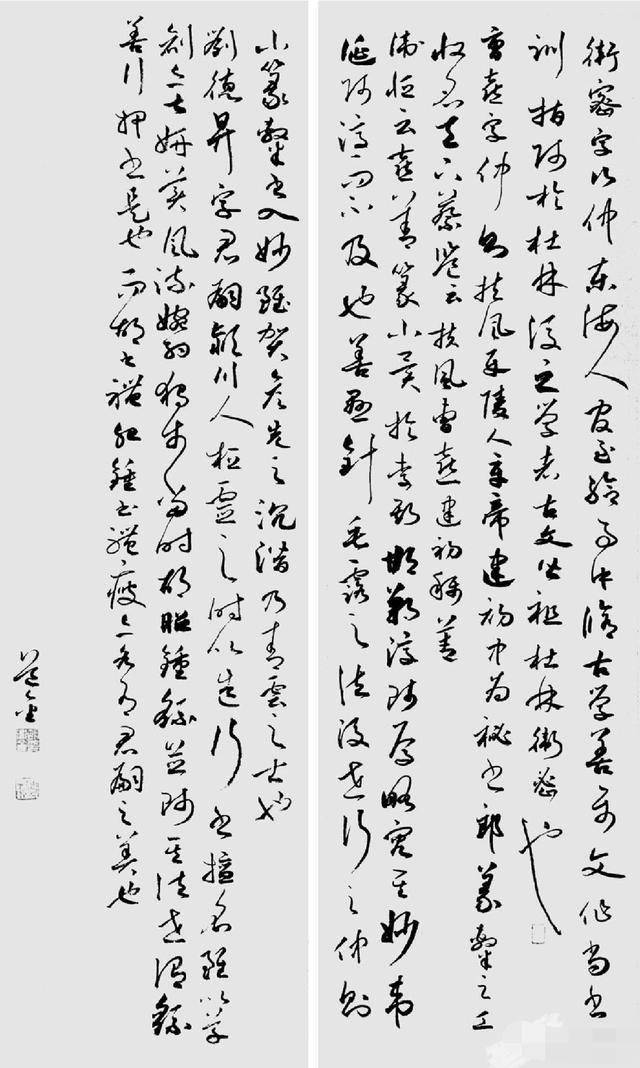 衛密字次仲東海人官至給事中修古學善古文作尚書
訓指師於杜林後之學者古文皆祖杜林衛密也
曹喜字仲則扶風平陵人章帝建初中為秘書郎篆隸之工
收名天下蔡邕云扶風曹喜建初稱善
衛恒云喜善篆小異於李斯邯鄲淳師焉略究其妙韋
誕師淳而不及也善懸針垂露之法後世行之仲則
小篆隸書入妙雖賀彥先之沉潛乃青雲之士也
劉德昇字君嗣潁川人桓靈之時以造行書擅名雖以草
創亦甚妍美風流婉約獨步當時胡昭鍾繇並師其法世謂鍾繇
善行狎書是也而胡書體肥鍾書體瘦亦各有君嗣之美也